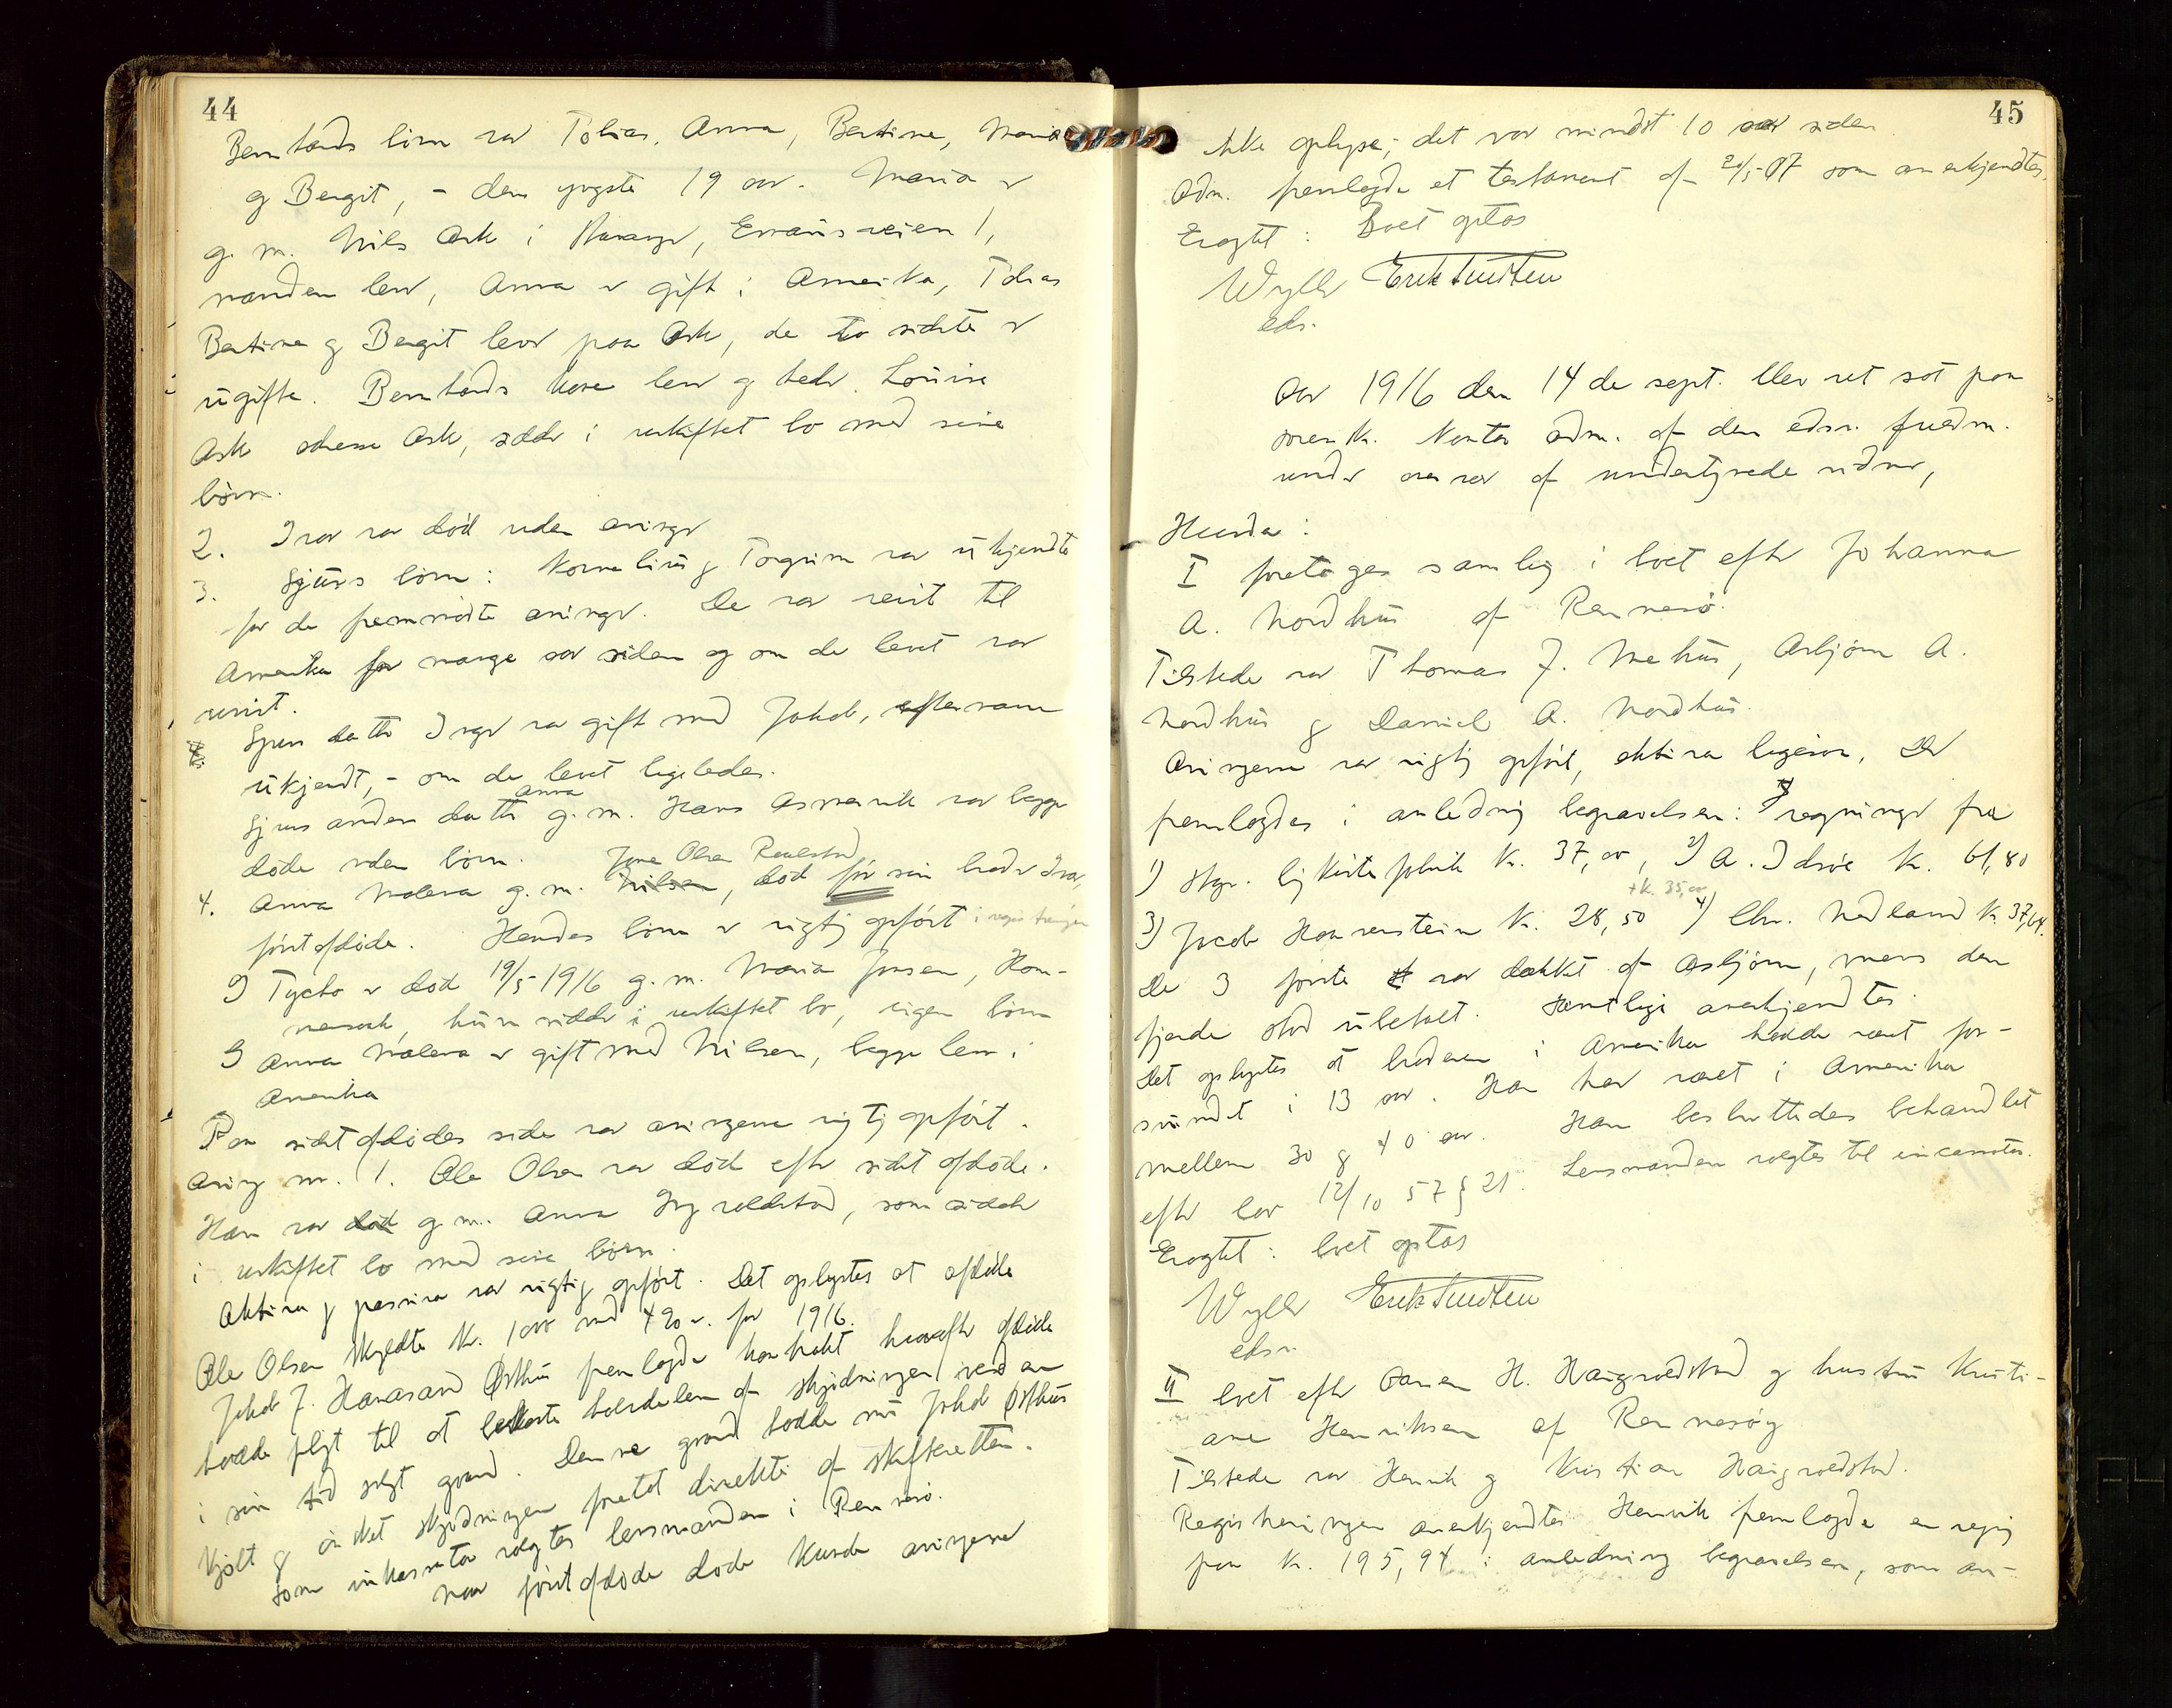 44
Berntards börn var Tobias, Anna, Bertine, Maria
g Bergit, - den yngste 19 aar. Maria er
g. m. Nils Ask i Stavanger, Emausveien 1,
manden lever, Anna er gift i Amerika, Tobias
Bertine g Bergit lever paa Ask, de to sidste er
ugifte. Berntards kone lever g heder Louise
Ask adresse Ask, sidder i uskiftet bo med sine
börn.
2. Ivar var död uden arvinger
3. Sjurs börn: Kornelius g Torgrim var ukjendte
for de fremmödte arvinger. De var reist til
Amerika for mange aar siden og om de levet var
uvist.
Sjurs datter Inger var gift med Jakob, efternavn
ukjendt, - om de levet ligeledes.
Sjurs anden datter Anna g. m. Hans Asmarvik var begge
döde uden börn.
Jone Olsen Reilstad
4. Anna Malena g. m. Nilsen, död för sin broder Ivar,
förstafdöde. Hendes börn er rigtig opfört i registreringen
2) Tycho er död 19/5 1916 g. m. Maria Jonsen, Hom-
mersak, hun sidder i uskiftet bo, ingen börn
5 Anna Malena er gift med Nilsen, begge lever i
Amerika
Paa sidstafdödes side var arvingerne rigtig opfört.
Arving nr. 1. Ole Olsen var död efter sidst afdöde.
Han var död g. m. Anna Hegrelskstad, som sidder
i uskiftet bo med sine börn.
Aktiva g passiva var rigtig opfört. Det oplystes at afdöde
Ole Olsen skyldte kr. 1000 med 4% r. for 1916.
Jakob J. Hanasand Østhus fremlagde kontrakt hvorefter afdöde
havde pligt til at bekoste halvdelen af skjödningen ved en
i sin tid solgt grund. Denne grund hadde nu Jakob Østhus
kjöbt g önsket skjödningen foretat direkte af skifteretten.
Som inkassator valgtes lensmanden i Rennesö.
Naar förstafdöde döde kunde arvingerne
45
ikke oplyse; det var mindst 10 aar siden
Adm. fremlagde et testament af 20/5 07 som anerkjendtes.
Eragtet: Boet optas
Wyller Erik Knudsen
eds.
Aar 1916 den 14 de sept. blev ret sat paa
sorensk. kontor adm. af den edsv. fuldm.
under overvær af undertegnede vidner,
Hvorda:
I foretoges samling i boet efter Johanna
A. Nordhus af Rennesö.
Tilstede var Thomas J. Mehus, Asbjörn A.
Nordhus g Daniel A. Nordhus.
Arvingerne var rigtig opfört, aktiva ligesom. Der
fremlagdes i anledning begravelsen: regninger fra
1) Stgr. ligkistefabrik kr. 37,00, 2) A. Idsöe kr. 61,80
+ k. 35,00
3) Jacob Hauenstein kr. 28,50 4) Chr. Nedland kr. 37,64.
De 3 förste var dækket af Asbjörn, mens den
fjerde stod ubetalt. Samtlige anerkjendtes.
Det oplystes at broderen i Amerika hadde været for-
svundet i 13 aar. Han har været i Amerika
mellem 30 g 40 aar. Han besluttedes behandlet
efter lov 12/10 57 § 21. Lensmanden valgtes til incassator.
Eragtet: boet optas
Wyller Erik Knudsen
edsv.
II boet efter Daniel H. Haugvaldstad g hustru Kristi-
ane Henriksen af Rennesöy
Tilstede var Henrik g Kristian Haugvaldstad.
Registreringen anerkjendtes. Henrik fremlagde en regning
paa kr. 195,94 i anledning begravelsen, som an-